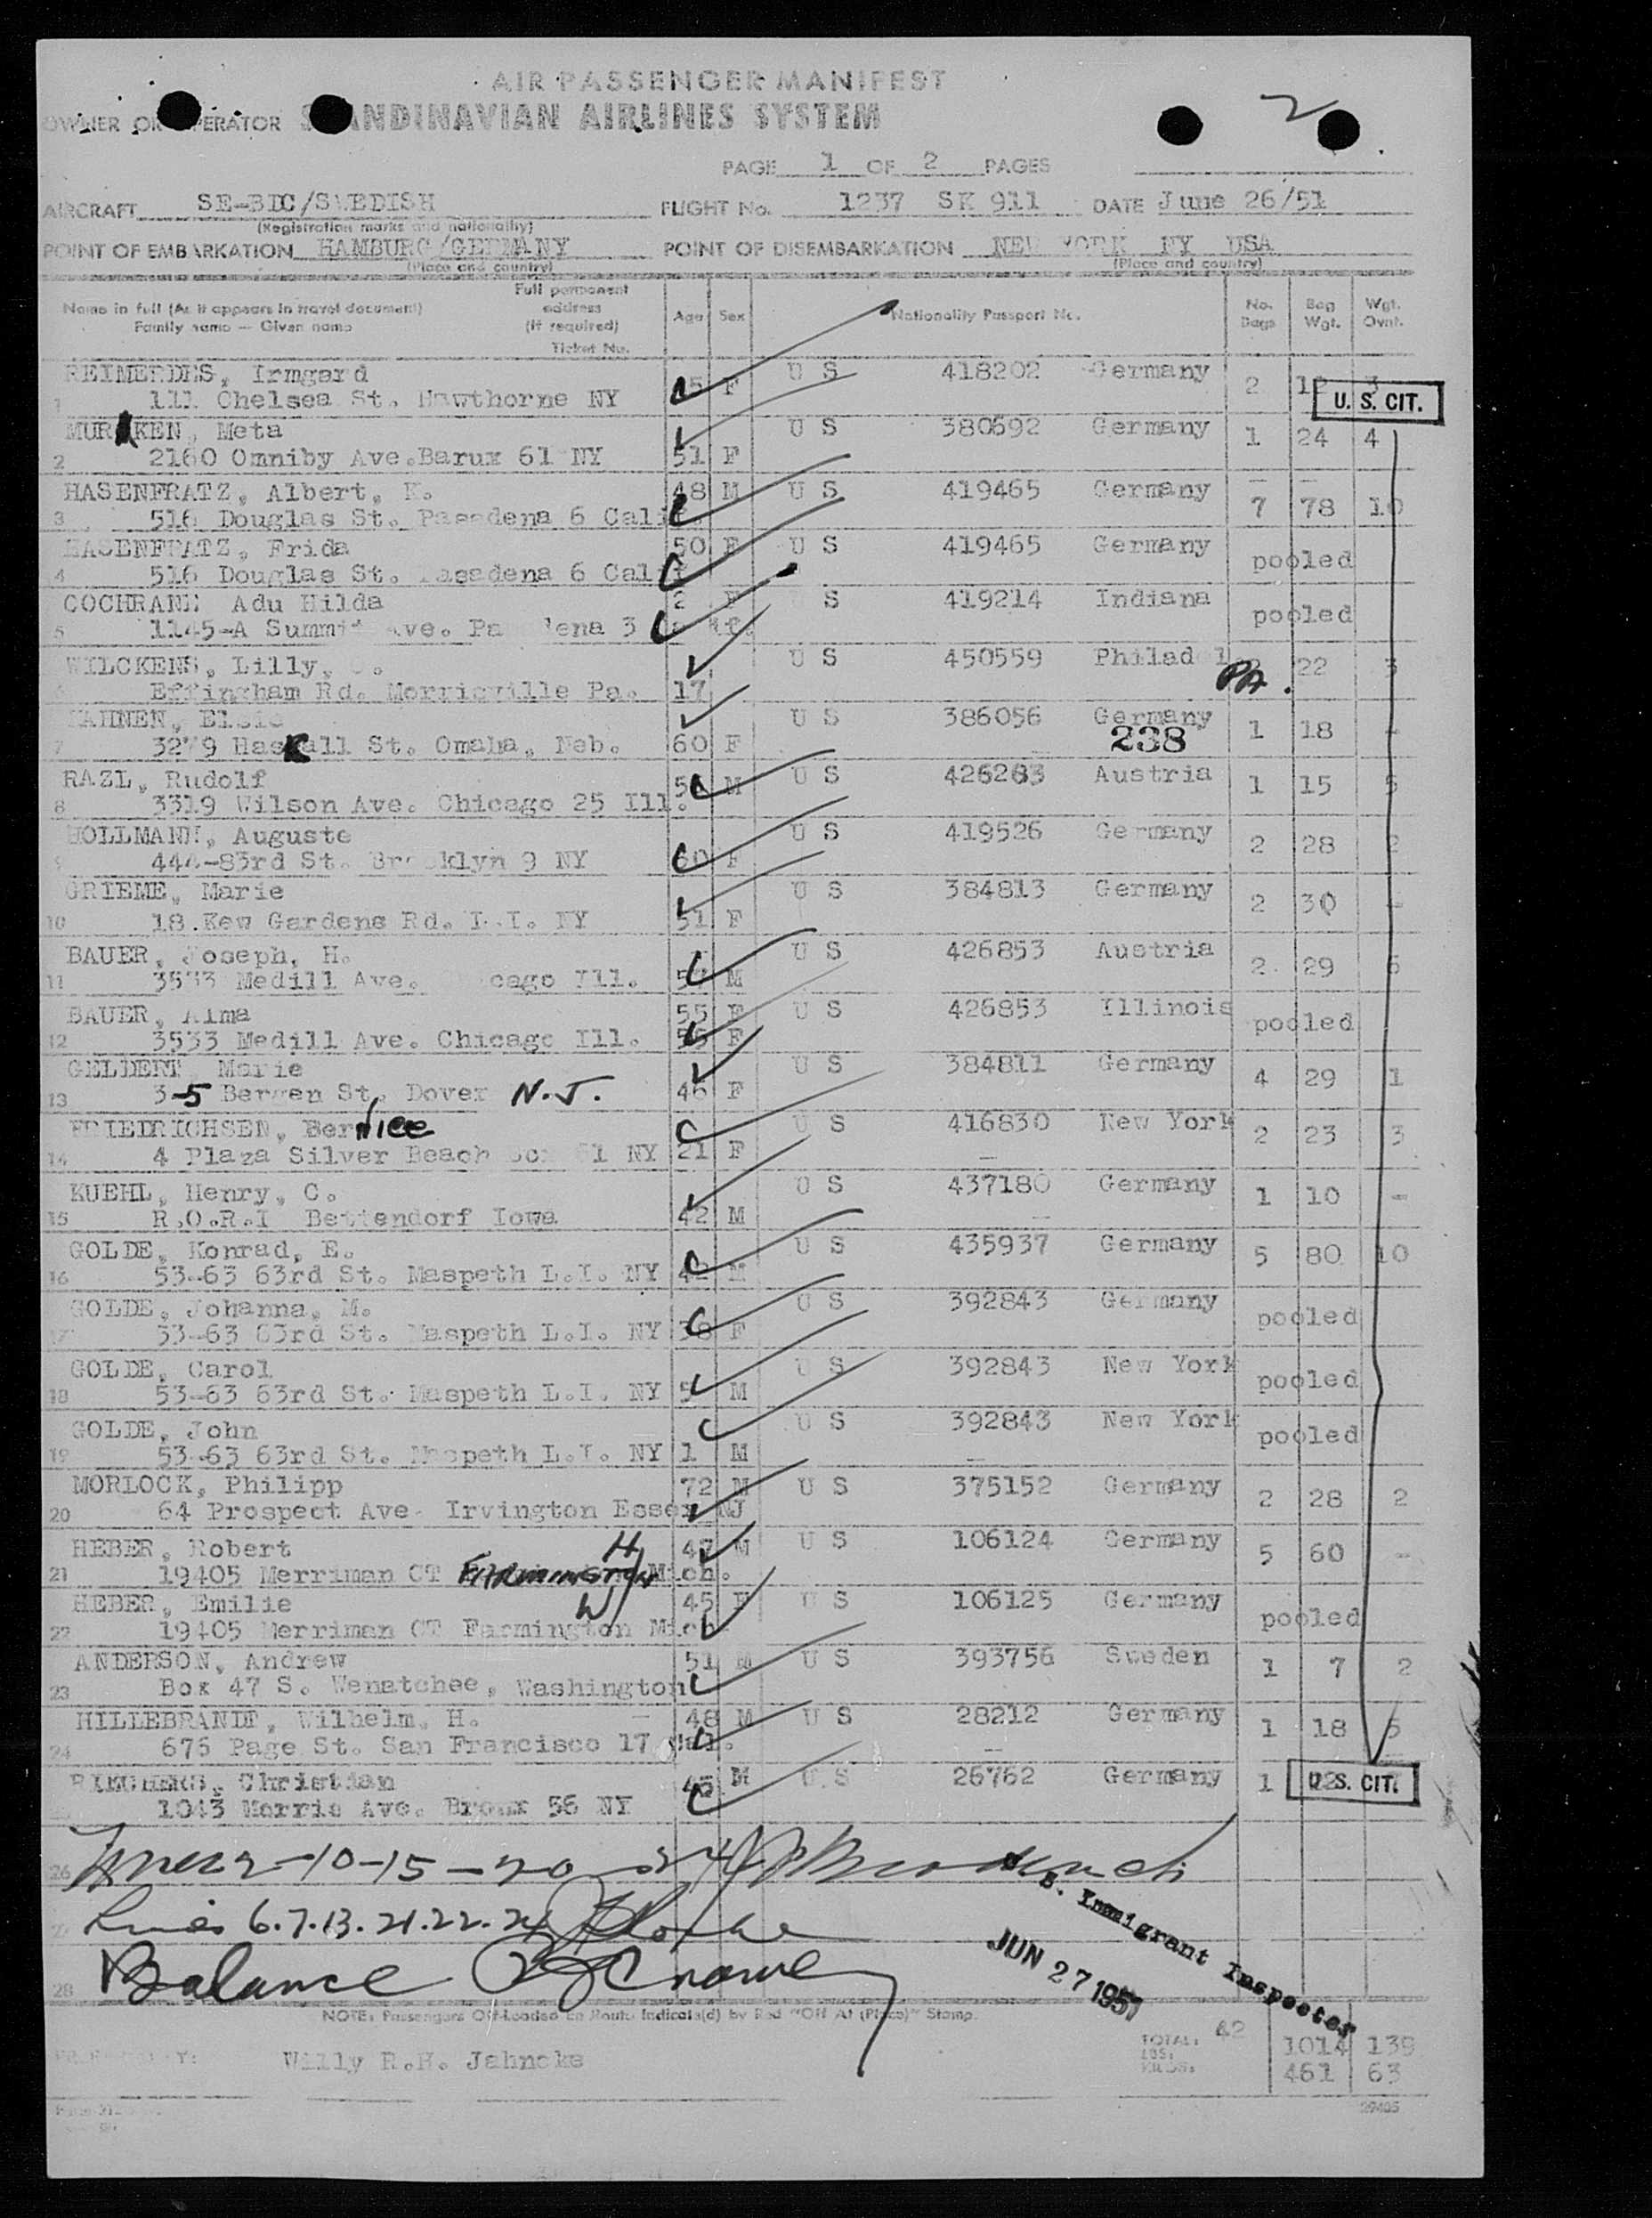 2
AIR PASSENGER MANIFEST
OWNER OR OPERATOR SCANDINAVIAN AIRLINES SYSTEM
PAGE 1 OF 2 PAGES
AIRCRAFT SE-BDC/SWEDISH FLIGHT No. 1237 SK 911 DATE June 26/51
(Registration marks and nationality)
POINT OF EMBARKATION HAMBURG/GERMANY POINT OF DISEMBARKATION NEW YORK NY USA
(Place and country) (Place and country)
Name in full (As it appears in travel document) Family name — Given name Full permanent address (If required) Ticket No. Age Sex Nationality Passport No. No. Bags Bag Wgt. Wgt. Ovnt.
REIMERDES, Irmgard U S 418202 Germany
1 111 Chelsea St. Hawthorne NY F 2 3
U. S. CIT.
MUR KEN, Meta U S 380692 Germany 1 24 4
2 2160 Omniby Ave. Barux 61 NY 51 F
HASENFRATZ, Albert, K. 48 M U S 419465 Germany
3 516 Douglas St. Pasadena 6 Calif 7 78 10
HASENFRATZ, Frida 50 F U S 419465 Germany
4 516 Douglas St. Pasadena 6 Calif pooled
COCHRANE Adu Hilda 2 F S 419214 Indiana
5 1145-A Summit Ave. Pasadena 3 Calif. pooled
WILCKENS, Lilly, U S 450559 Philadel PA. 22 3
6 Effingham Rd. Morrisville Pa. 17
HAHNEN, Elsie U S 386056 Germany
7 3279 Haskall St. Omaha, Neb. 60 F 238 1 18 -
RAZL, Rudolf M U S 426263 Austria
8 3319 Wilson Ave. Chicago 25 Ill. 1 15 5
HOLLMANN, Auguste U S 419526 Germany
9 444-83rd St. Brooklyn 9 NY 60 F 2 28 2
GRIEME, Marie U S 384813 Germany
10 18.Kew Gardens Rd. L.I. NY 51 F 2 30 -
BAUER, Joseph, H. U S 426853 Austria
11 3533 Medill Ave. Chicago Ill. M 2 29 6
BAUER, Alma 55 F U S 426853 Illinois
12 3533 Medill Ave. Chicago Ill. 55 F pooled
GELDERT Marie U S 384811 Germany
13 3-5 Bergen St, Dover N.J. 46 F 4 29 1
FRIEDRICHSEN, Bernice U S 416830 New York
14 4 Plaza Silver Beach 61 NY 21 F 2 23 3
KUEHL, Henry, C. U S 437180 Germany
15 R.O.R.I Bettendorf Iowa 42 M 1 10 -
GOLDE, Konrad, E. U S 435937 Germany
16 53-63 63rd St. Maspeth L.I. NY 42 M 5 80 10
GOLDE, Johanna, M. U S 392843 Germany
17 53-63 63rd St. Maspeth L.I. NY 38 F pooled
GOLDE, Carol U S 392843 New York
18 53-63 63rd St. Maspeth L.I. NY 5 M pooled
GOLDE, John U S 392843 New York
19 53-63 63rd St. Maspeth L.I. NY 1 M pooled
MORLOCK, Philipp 72 M U S 375152 Germany
20 64 Prospect Ave. Irvington Essex NJ 2 28 2
HEBER, Robert H 47 M U S 106124 Germany
21 19405 Merriman CT FARMINGTON Mich. 5 60 -
HEBER, Emilie W 45 F U S 106125 Germany
22 19405 Merriman CT Farmington Mich pooled
ANDERSON, Andrew 51 M U S 393756 Sweden
23 Box 47 S. Wenatchee, Washington 1 7 2
HILLEBRANDT, Wilhelm, H. 48 M U S 28212 Germany
24 675 Page St. San Francisco 17 Cal. 1 18 5
Christian 45 M U.S 26762 Germany 1
1043 Morris Ave. Bronx 56 NY
U. S. CIT.
26 Lines 2-10-15-20
27 Lines 6.7.13.21.22.24
28 Balance
U. S. Immigrant Inspector
JUN 27 1951
NOTE: Passengers Off-Loaded En Route Indicate(d) by Red "Off At (Place)" Stamp.
PREPARED BY: Willy R.H. Jahncke
TOTAL: 42
LBS. 1014 139
KILOS. 461 63
29405